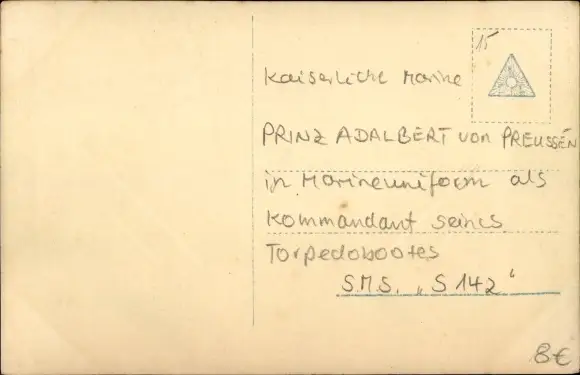 15
Kaiserliche Marine
PRINZ ADALBERT von PREUSSEN
in Marineuniform als
Kommandant seines
Torpedobootes
S.M.S. „S 142"
8€